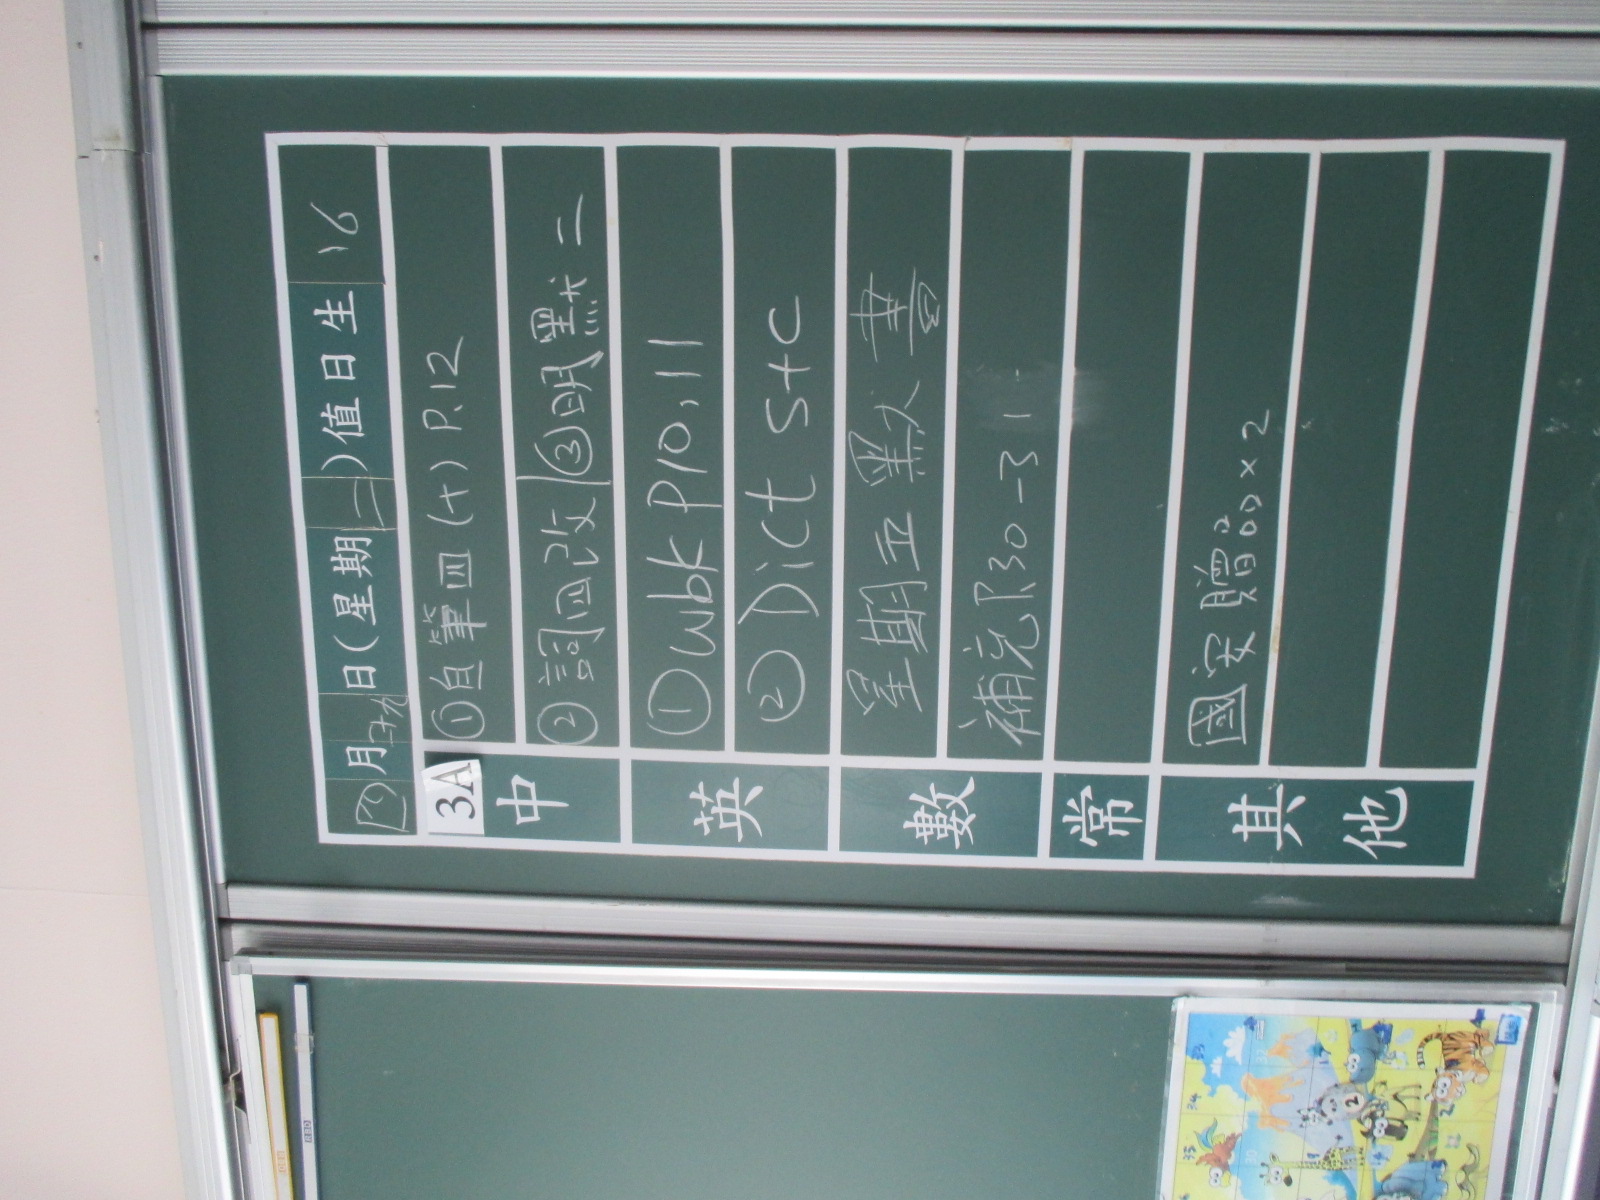 四月廿九日(星期二)值日生 16
3A
中 ①自筆四(十) P.12
②詞四改 ③明默二
英 ①Wbk P10,11
②Dict S+C
數 星期五默書
補充P.30-31
常
其他 國安贈品×2